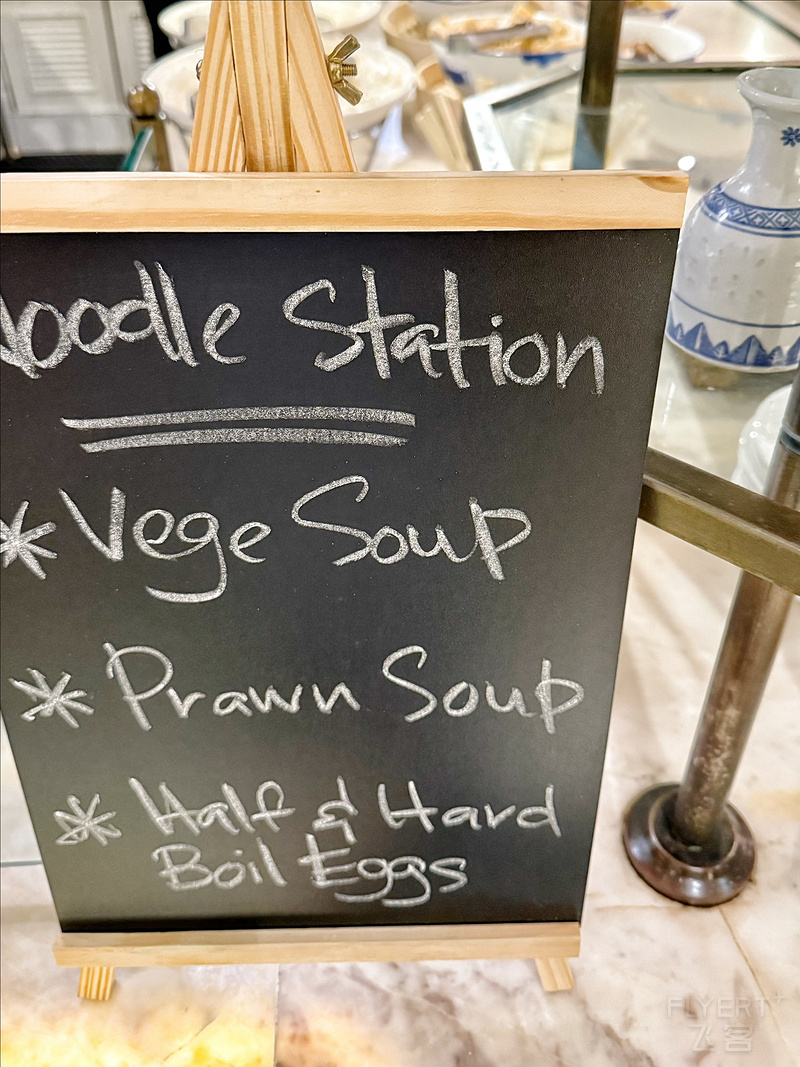 Noodle Station
* Vege Soup
* Prawn Soup
* Half & Hard
Boil Eggs
FLYERT+
飞客